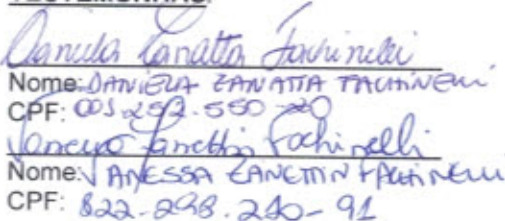 TESTEMUNHAS:
Daniela Zanatta Fachinelli
Nome: DANIELA ZANATTA FACHINELLI
CPF: 001.252.550-20
Vanessa Zanettin Fachinelli
Nome: VANESSA ZANETTIN FACHINELLI
CPF: 822-298.240-91